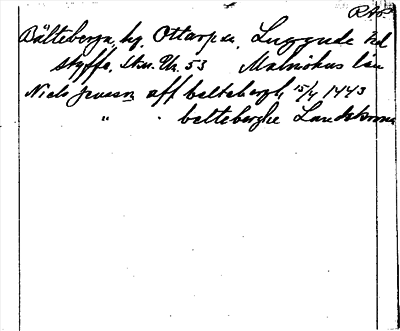 RAp
Bälteberga, hg, Ottarp sn, Luggude hd
Styffe, Skn. Un. 53 Malmöhus län
Niels jwensson aff beltebergh 15/4 1443
" . belteberghe Landskrona